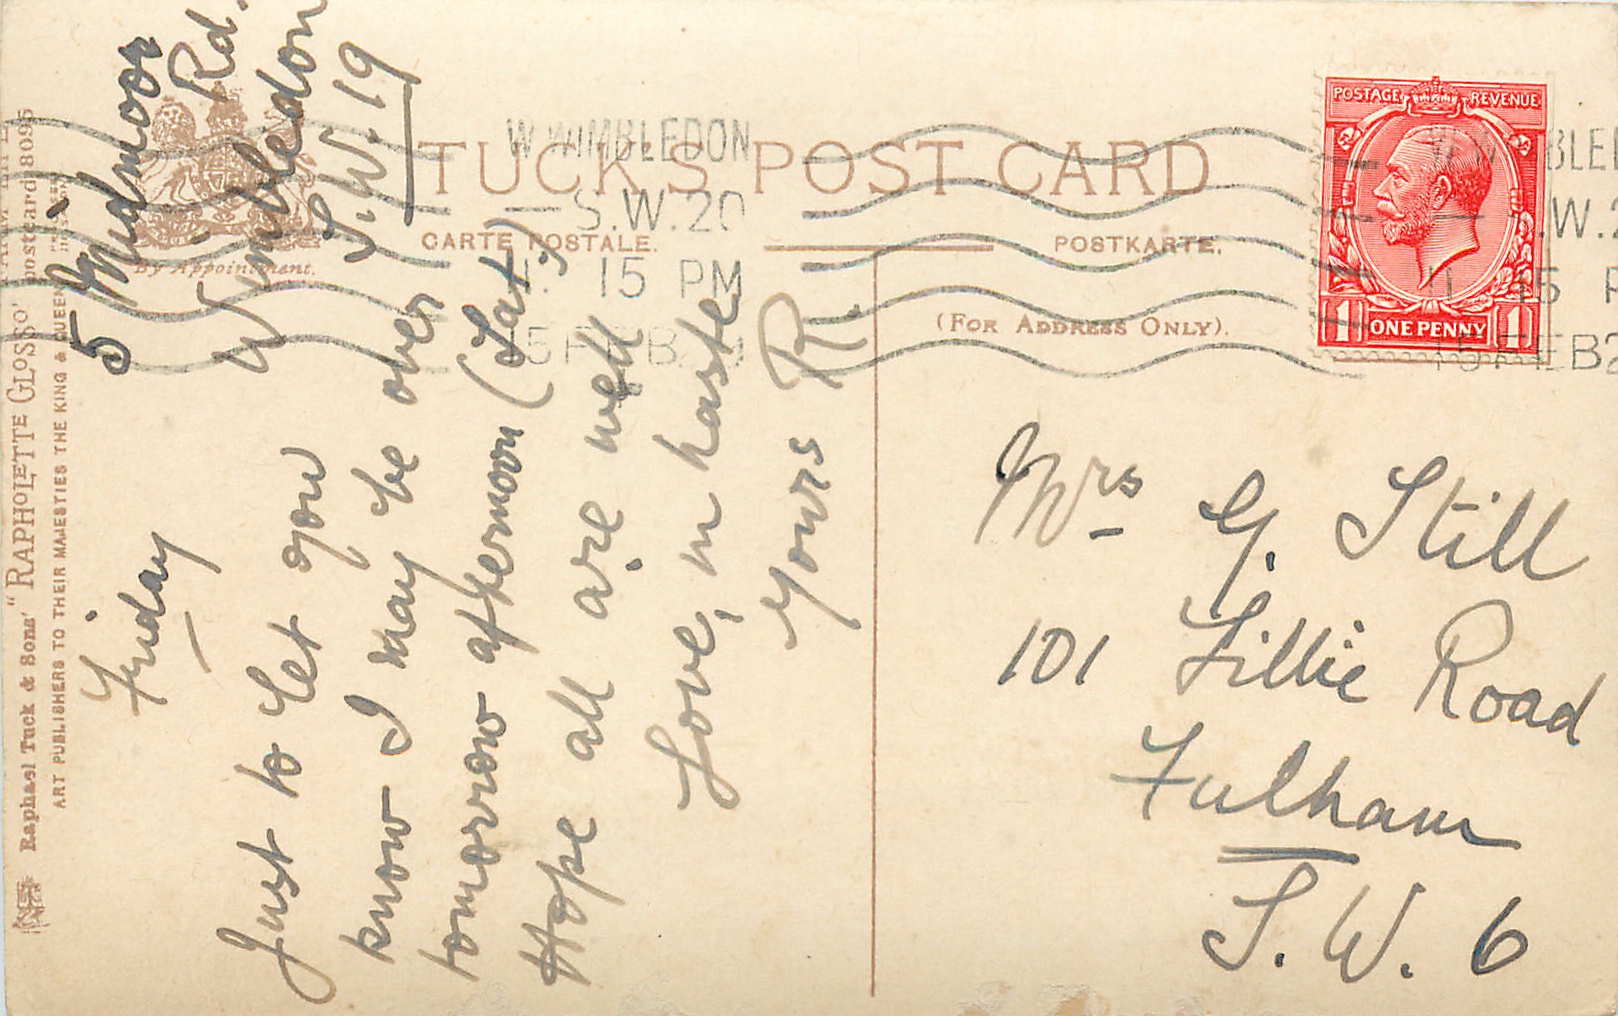 TUCK'S POST CARD
CARTE POSTALE.
POSTKARTE.
(FOR ADDRESS ONLY).
By Appointment.
Raphael Tuck & Sons' "RAPHOLETTE GLOSSO" postcard 8095
ART PUBLISHERS TO THEIR MAJESTIES THE KING & QUEEN
W. WIMBLEDON
S.W.20
15 PM
15 FEB
POSTAGE REVENUE
1 ONE PENNY 1
5 Midmoor
Rd.
Wimbledon
S.W.19
Friday
Just to let you
know I may be over
tomorrow afternoon (Sat:)
Hope all are well
Love, in haste
Yours R.
Mrs G. Still
101 Lillie Road
Fulham
S.W. 6